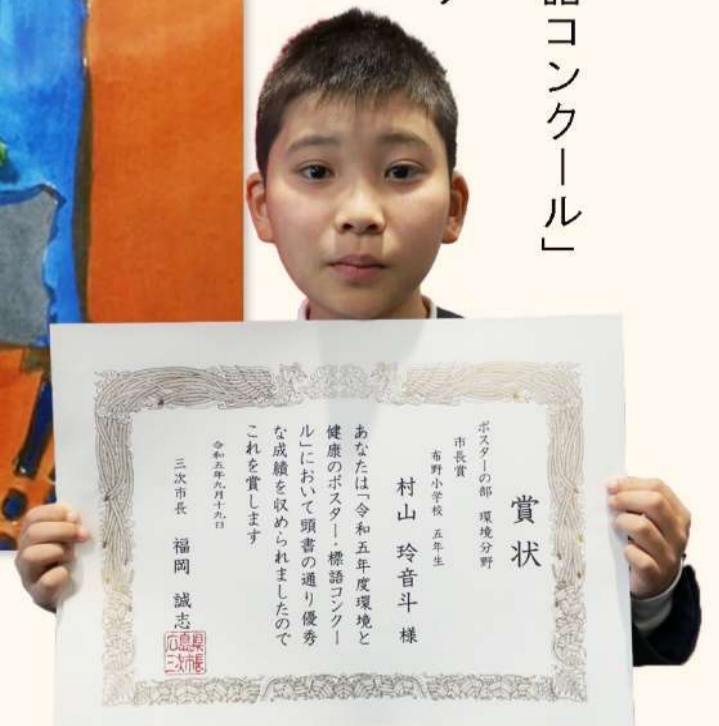 語コンクール」
賞状
ポスターの部 環境分野
市長賞
布野小学校 五年生
村山 玲音斗 様
あなたは「令和五年度環境と
健康のポスター・標語コンクー
ル」において頭書の通り優秀
な成績を収められましたので
これを賞します
令和五年九月十九日
三次市長 福岡 誠志
広島県
三次市長